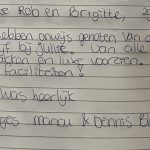 se Rob en Brigitte, 2
ebben onwijs genoten van
jf bij jullie! Van alle
akken en luxe voorzien.
faciliteiten!
Was heerlijk
jes Manou & Dennis Bl